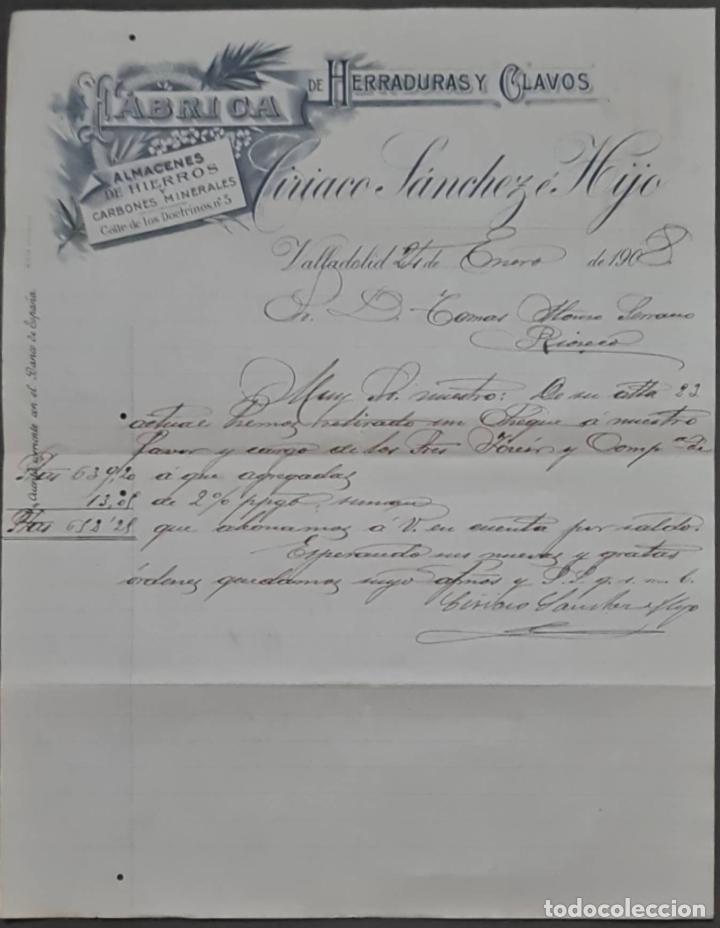 FÁBRICA DE HERRADURAS Y CLAVOS
ALMACENES
DE HIERROS
Y
CARBONES MINERALES
Calle de los Doctrinos, nº 5
Ciriaco Sánchez é Hijo
Valladolid 24 de Enero de 1908
Sr. D. Tomas Alonso Serrano
Rioseco
Muy Sr. nuestro: De su atta 23
actual hemos retirado un cheque á nuestro
favor y cargo de los Sres Jover y Compª de
Ptas 639,20 á que agregadas
13,05 de 2% ppgo, suman
Ptas 652'25 que abonamos á V. en cuenta por saldo.
Esperando sus nuevas y gratas
órdenes quedamos suyo afmos y S.S. q. s. m. b.
Ciriaco Sanchez é Hijo
Cuenta corriente en el Banco de España.
todocoleccion